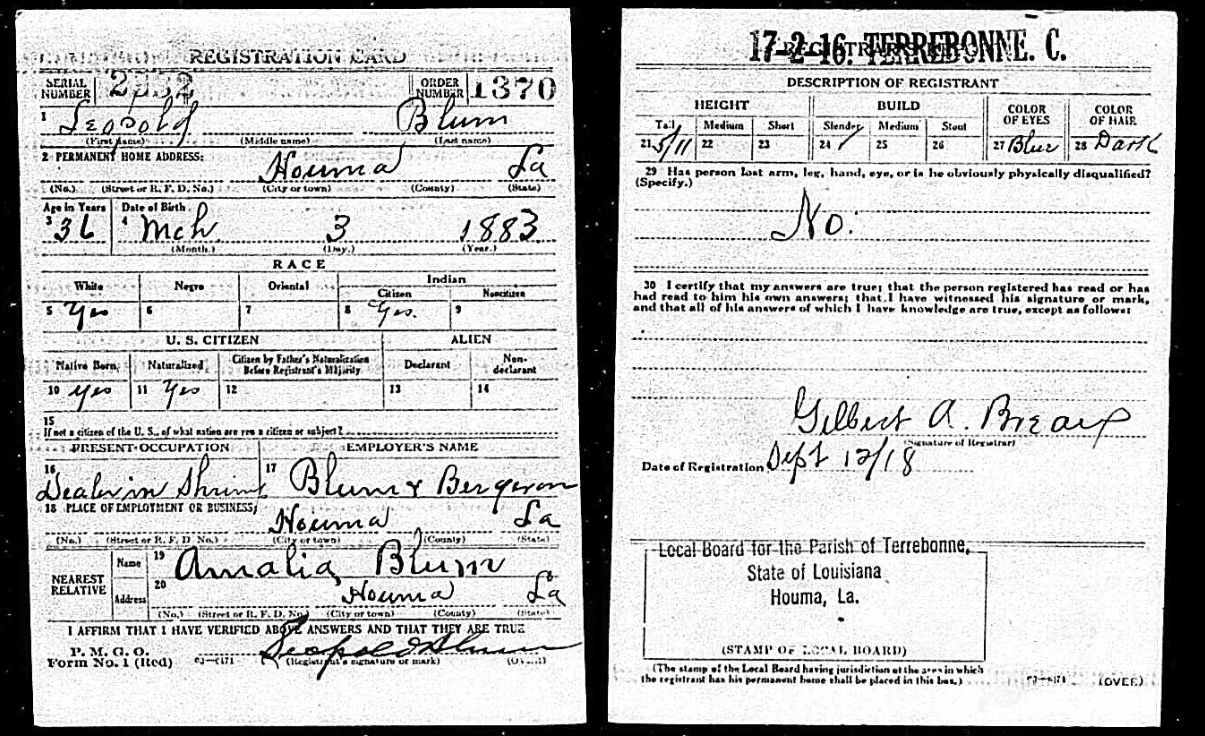 REGISTRATION CARD
SERIAL NUMBER ORDER NUMBER 1370
1 Leopold Blum
(First name) (Middle name) (Last name)
2 PERMANENT HOME ADDRESS:
Houma La
(No.) (Street or R. F. D. No.) (City or town) (County) (State)
Age in Years Date of Birth
3 36 4 Mch 3 1883
(Month.) (Day.) (Year.)
RACE
White Negro Oriental Indian
Citizen Noncitizen
5 Yes 6 7 8 Yes. 9
U. S. CITIZEN ALIEN
Native Born. Naturalized. Citizen by Father's Naturalization Before Registrant's Majority Declarant Non-declarant
10 Yes 11 Yes 12 13 14
15
If not a citizen of the U. S., of what nation are you a citizen or subject?
PRESENT OCCUPATION EMPLOYER'S NAME
16 Dealer in Shrimp 17 Blum & Bergeron
18 PLACE OF EMPLOYMENT OR BUSINESS:
Houma La
(No.) (Street or R. F. D. No.) (City or town) (County) (State)
NEAREST RELATIVE
Name 19 Amalia Blum
Address 20 Houma La
(No.) (Street or R. F. D. No.) (City or town) (County) (State)
I AFFIRM THAT I HAVE VERIFIED ABOVE ANSWERS AND THAT THEY ARE TRUE
P. M. G. O.
Form No. 1 (Red) Leopold Blum
(Registrant's signature or mark) (OVER)
17-2-16. TERREBONNE. C.
DESCRIPTION OF REGISTRANT
HEIGHT BUILD COLOR OF EYES COLOR OF HAIR
Tall Medium Short Slender Medium Stout
21 5/11 22 23 24 / 25 26 27 Blue 28 Dark
29 Has person lost arm, leg, hand, eye, or is he obviously physically disqualified?
(Specify.)
No.
30 I certify that my answers are true; that the person registered has read or has
had read to him his own answers; that I have witnessed his signature or mark,
and that all of his answers of which I have knowledge are true, except as follows:
Gilbert A. Breaux
(Signature of Registrar)
Date of Registration Sept 12/18
Local Board for the Parish of Terrebonne,
State of Louisiana
Houma, La.
(STAMP OF LOCAL BOARD)
(The stamp of the Local Board having jurisdiction of the area in which
the registrant has his permanent home shall be placed in this box.)
(OVER)